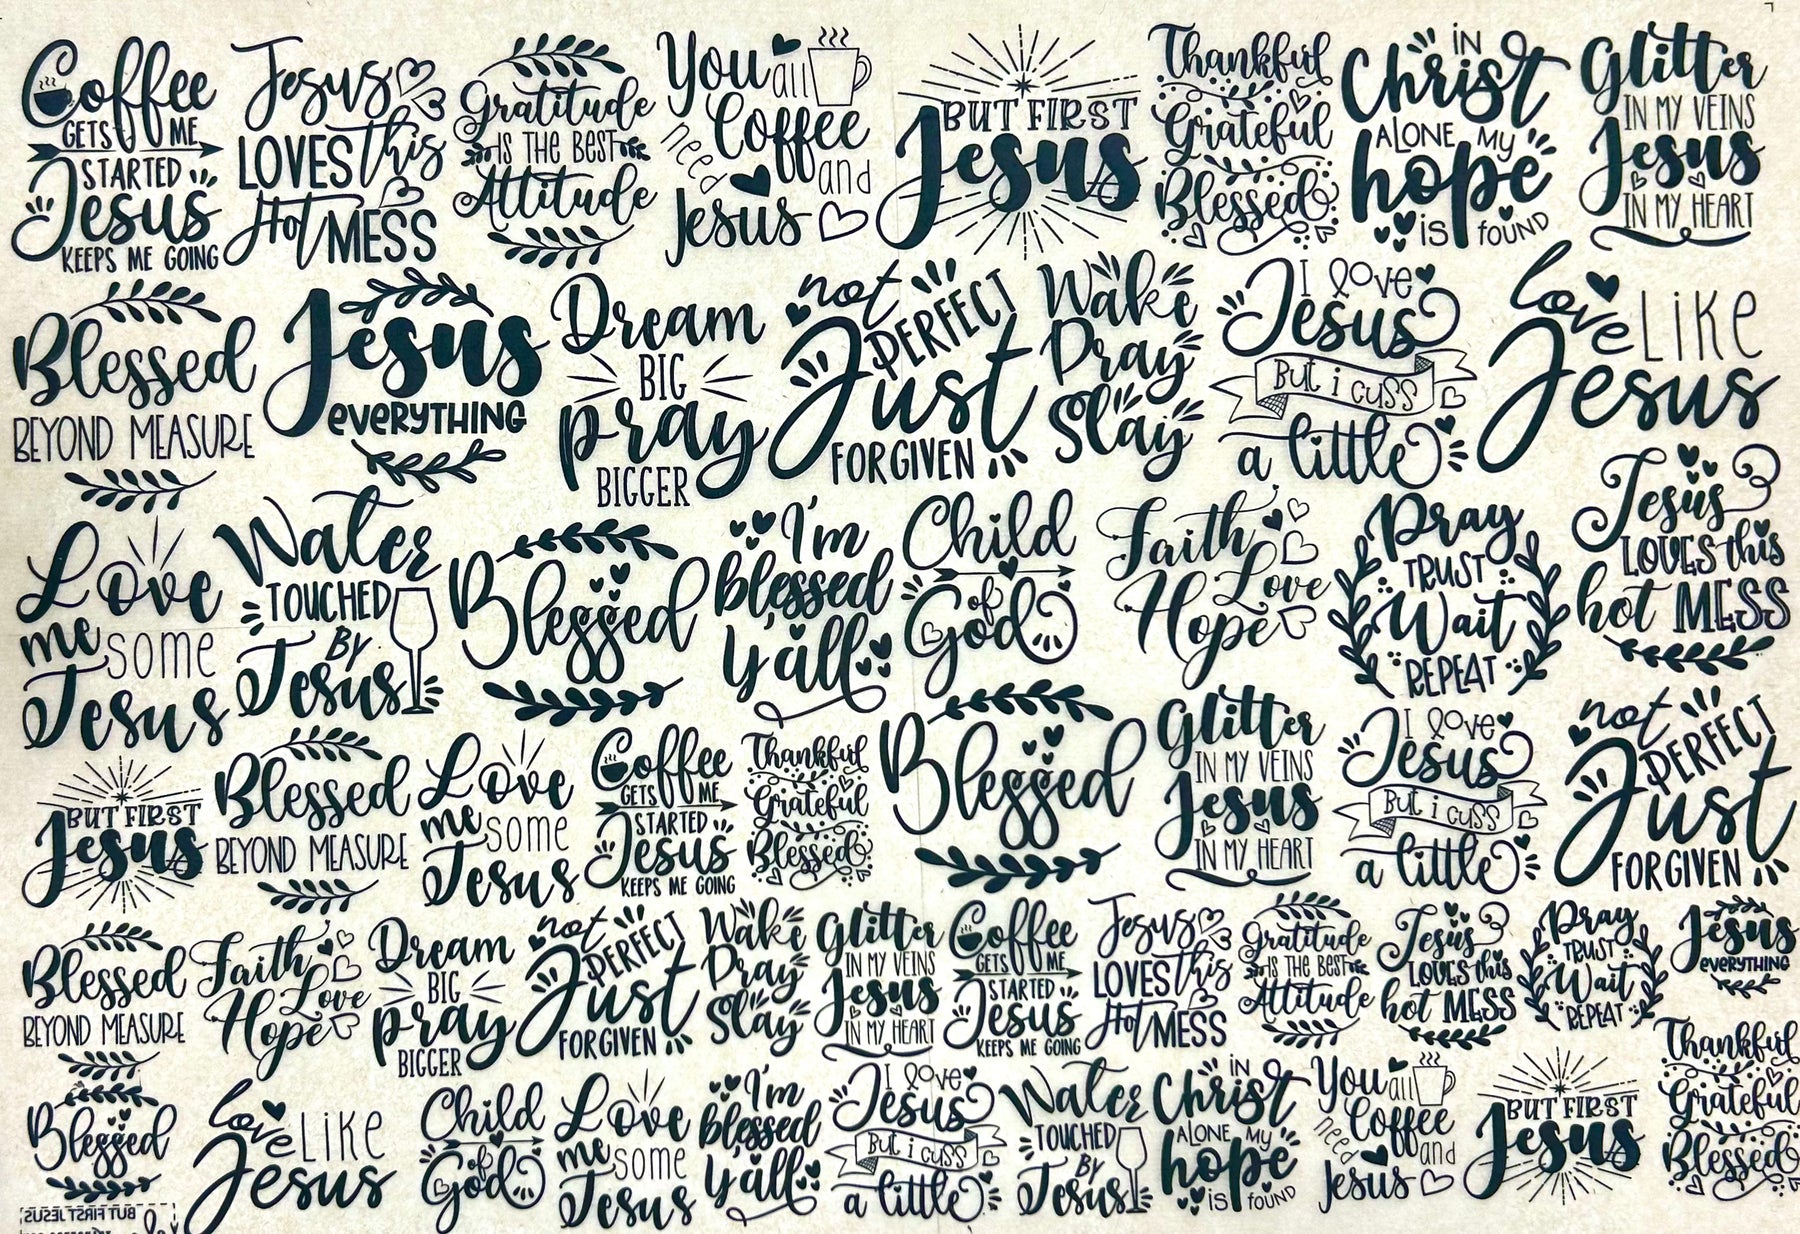 Coffee
GETS ME
STARTED
Jesus
KEEPS ME GOING
Jesus
LOVES this
Hot MESS
Gratitude
IS THE BEST
Attitude
You all
need Coffee
and
Jesus
BUT FIRST
Jesus
Thankful
Grateful
Blessed
IN
Christ
ALONE MY
hope
is FOUND
Glitter
IN MY VEINS
Jesus
IN MY HEART
Blessed
BEYOND MEASURE
Jesus
EVERYTHING
Dream
BIG
pray
BIGGER
not
PERFECT
Just
FORGIVEN
Wake
Pray
Slay
I love
Jesus
But i cuss
a little
love LIKE
Jesus
Love
me some
Jesus
Water
TOUCHED
BY
Jesus
Blessed
I'm
blessed
y'all
Child
of
God
Faith
Love
Hope
Pray
TRUST
Wait
REPEAT
Jesus
LOVES this
hot MESS
BUT FIRST
Jesus
Blessed
BEYOND MEASURE
Love
me some
Jesus
Coffee
GETS ME
STARTED
Jesus
KEEPS ME GOING
Thankful
Grateful
Blessed
Blessed
Glitter
IN MY VEINS
Jesus
IN MY HEART
I love
Jesus
But i cuss
a little
not
PERFECT
Just
FORGIVEN
Blessed
BEYOND MEASURE
Faith
Love
Hope
Dream
BIG
pray
BIGGER
not
PERFECT
Just
FORGIVEN
Wake
Pray
Slay
Glitter
IN MY VEINS
Jesus
IN MY HEART
Coffee
GETS ME
STARTED
Jesus
KEEPS ME GOING
Jesus
LOVES this
Hot MESS
Gratitude
IS THE BEST
Attitude
Jesus
LOVES this
hot MESS
Pray
TRUST
Wait
REPEAT
Jesus
EVERYTHING
Blessed
love LIKE
Jesus
Child
of
God
Love
me some
Jesus
I'm
blessed
y'all
I love
Jesus
But i cuss
a little
Water
TOUCHED
BY
Jesus
IN
Christ
ALONE MY
hope
is FOUND
You all
need Coffee
and
Jesus
BUT FIRST
Jesus
Thankful
Grateful
Blessed
BUT FIRST JESUS